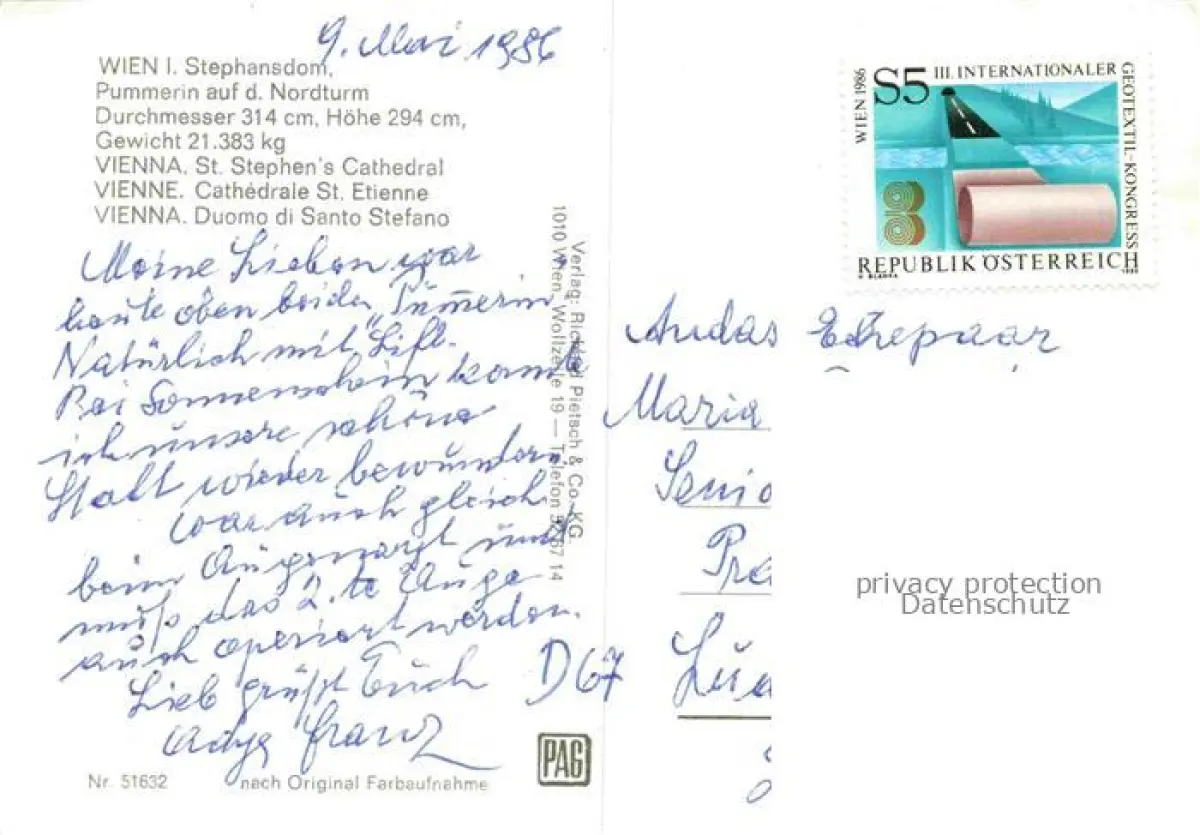 9. Mai 1986
WIEN I. Stephansdom,
Pummerin auf d. Nordturm
Durchmesser 314 cm, Höhe 294 cm,
Gewicht 21.383 kg
VIENNA. St. Stephen's Cathedral
VIENNE. Cathédrale St. Etienne
VIENNA. Duomo di Santo Stefano
Meine Lieben war
heute oben bei der „Pummerin
Natürlich mit Lift.
Bei Sonnenschein konnte
ich unsere schöne
Stadt wieder bewundern
war auch gleich
beim Augenarzt und
muß das 2.te Auge
auch operiert werden.
Lieb grüßt Euch
Franz
Nr. 51632
nach Original Farbaufnahme
PAG
Verlag: Richard Pietsch & Co. KG.
1010 Wien, Wollzeile 19 — Telefon 14
WIEN 1986
S5
III. INTERNATIONALER
GEOTEXTIL-KONGRESS
REPUBLIK ÖSTERREICH
An das Ehepaar
Maria
Senio
Pre
D 67
privacy protection
Datenschutz